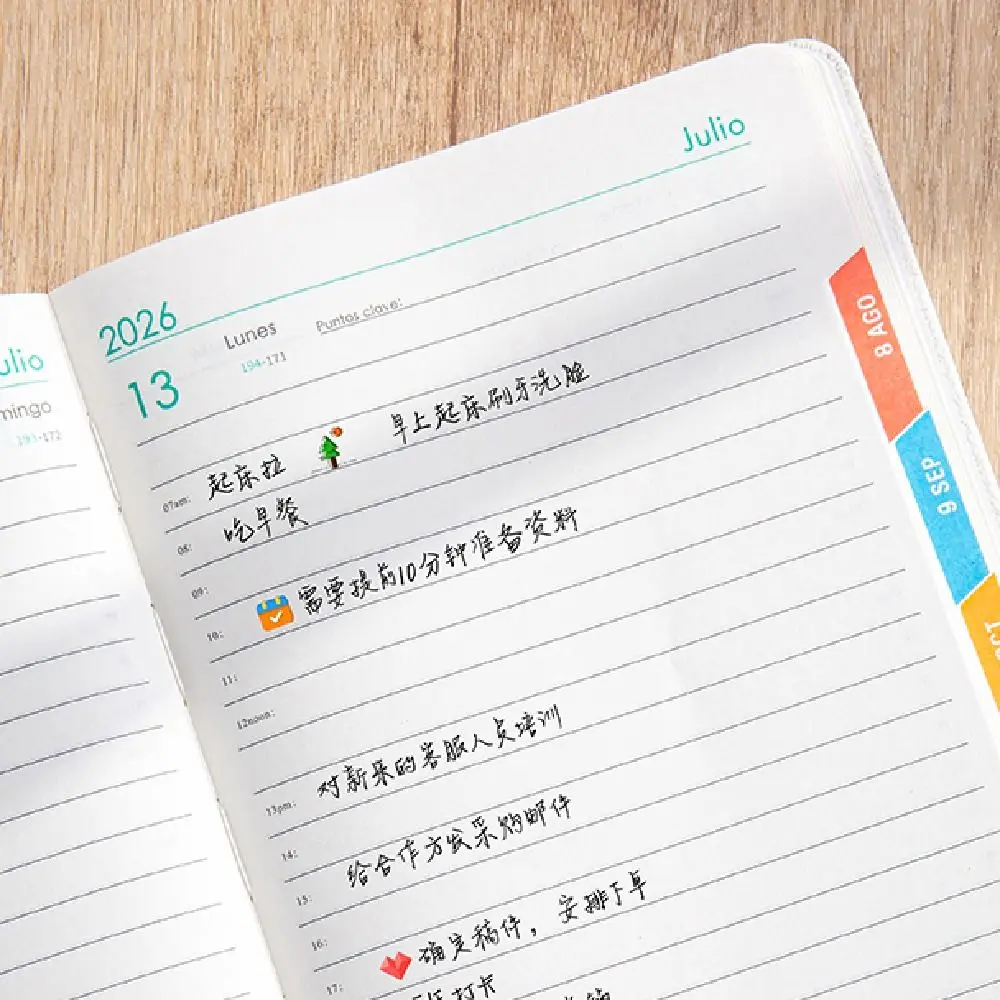 Julio
2026
13
Lunes
194-171
Puntos clave:
07am: 起床拉 早上起床刷牙洗脸
08: 吃早餐
09:
10: 需要提前10分钟准备资料
11:
12noon:
13pm: 对新来的客服人员培训
14:
15: 给合作方发采购邮件
16:
17: 确定稿件，安排下单
打卡
ulio
mingo
193-172
8 AGO
9 SEP